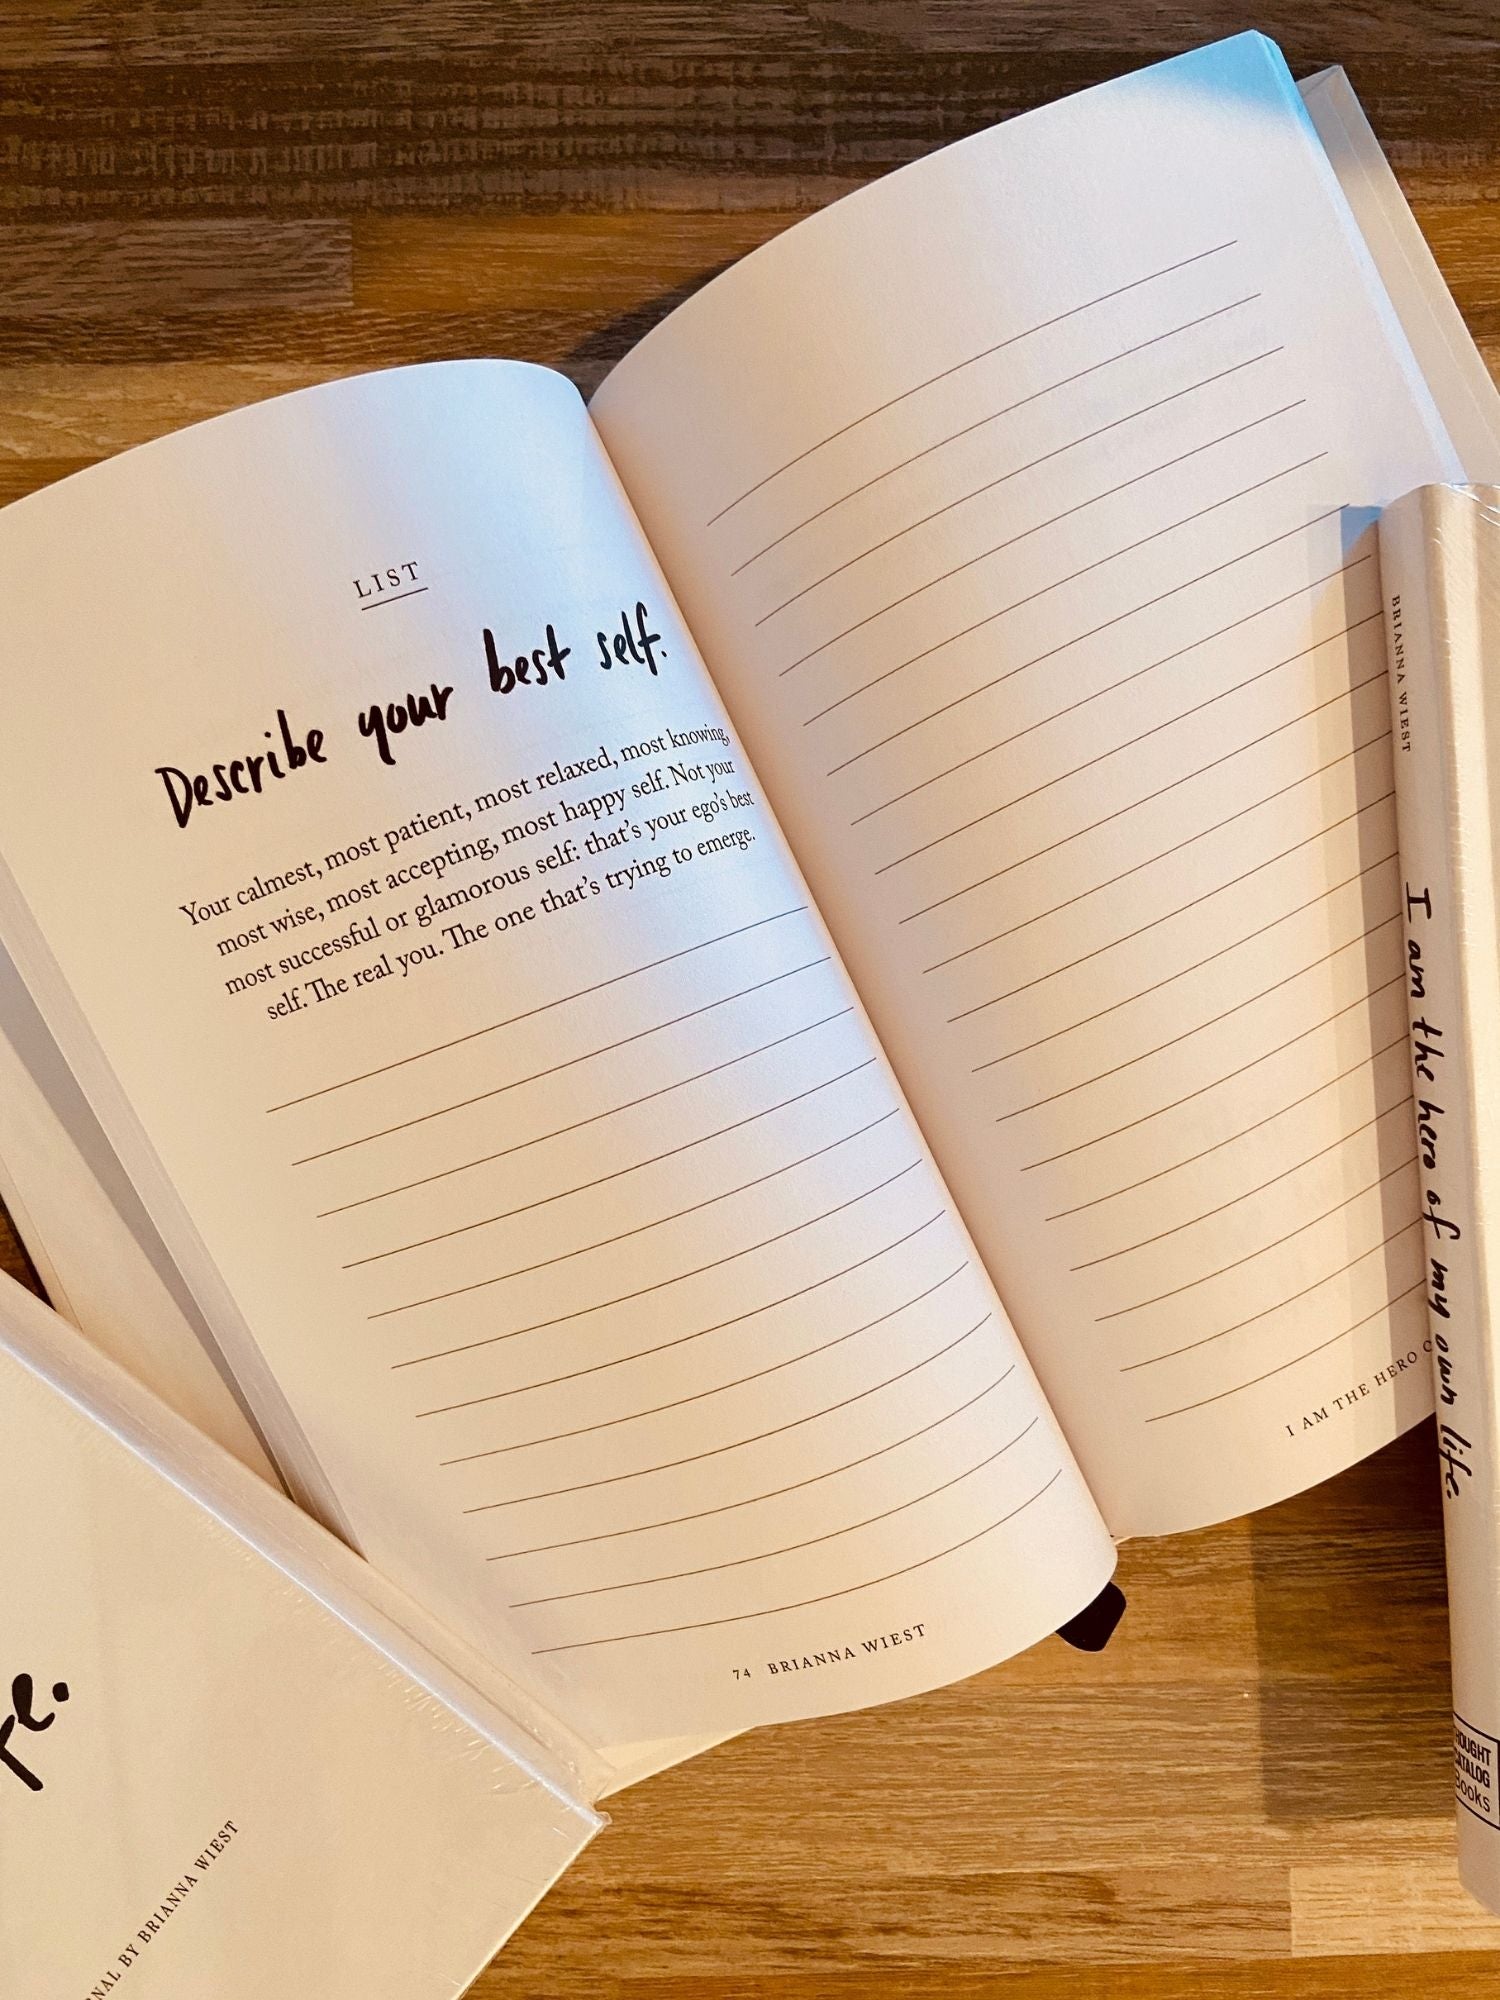 LIST
Describe your best self.
Your calmest, most patient, most relaxed, most knowing,
most wise, most accepting, most happy self. Not your
most successful or glamorous self: that's your ego's best
self. The real you. The one that's trying to emerge.
74 BRIANNA WIEST
I AM THE HERO
BRIANNA WIEST
I am the hero of my own life.
THOUGHT
CATALOG
Books
BY BRIANNA WIEST